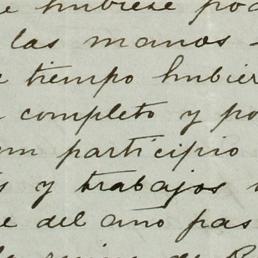 e hubiese pod
las manos -
e tiempo hubier
completo y po
un participio
s y trabajos
e del año pas